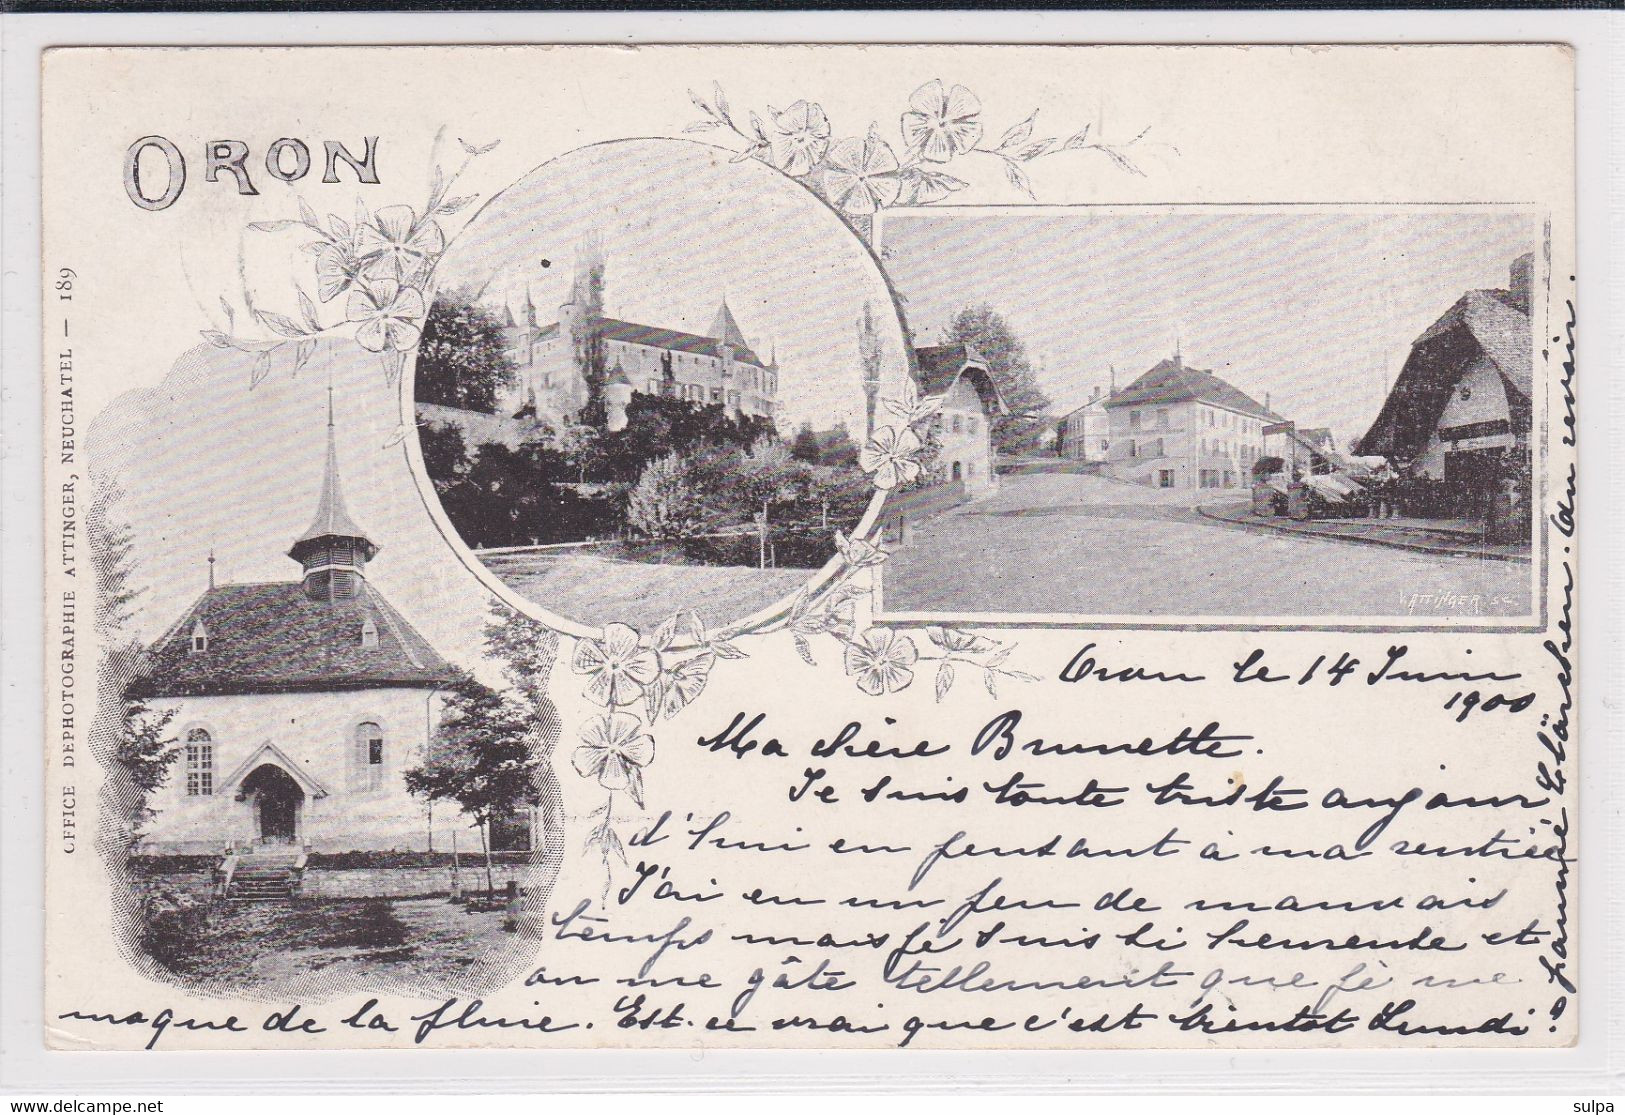 ORON
OFFICE DEPHOTOGRAPHIE ATTINGER, NEUCHATEL — 189
ATTINGER SC.
Oron le 14 Juin
1900
Ma chère Brunette.
Je suis toute triste aujour
d'hui en pensant à ma rentrée
J'ai eu un peu de mauvais
temps mais je suis si heureuse et
on me gâte tellement que je me
moque de la pluie. Est-ce vrai que c'est bientot Lundi?
pauvre Clärchen. Au revoir.
www.delcampe.net
sulpa